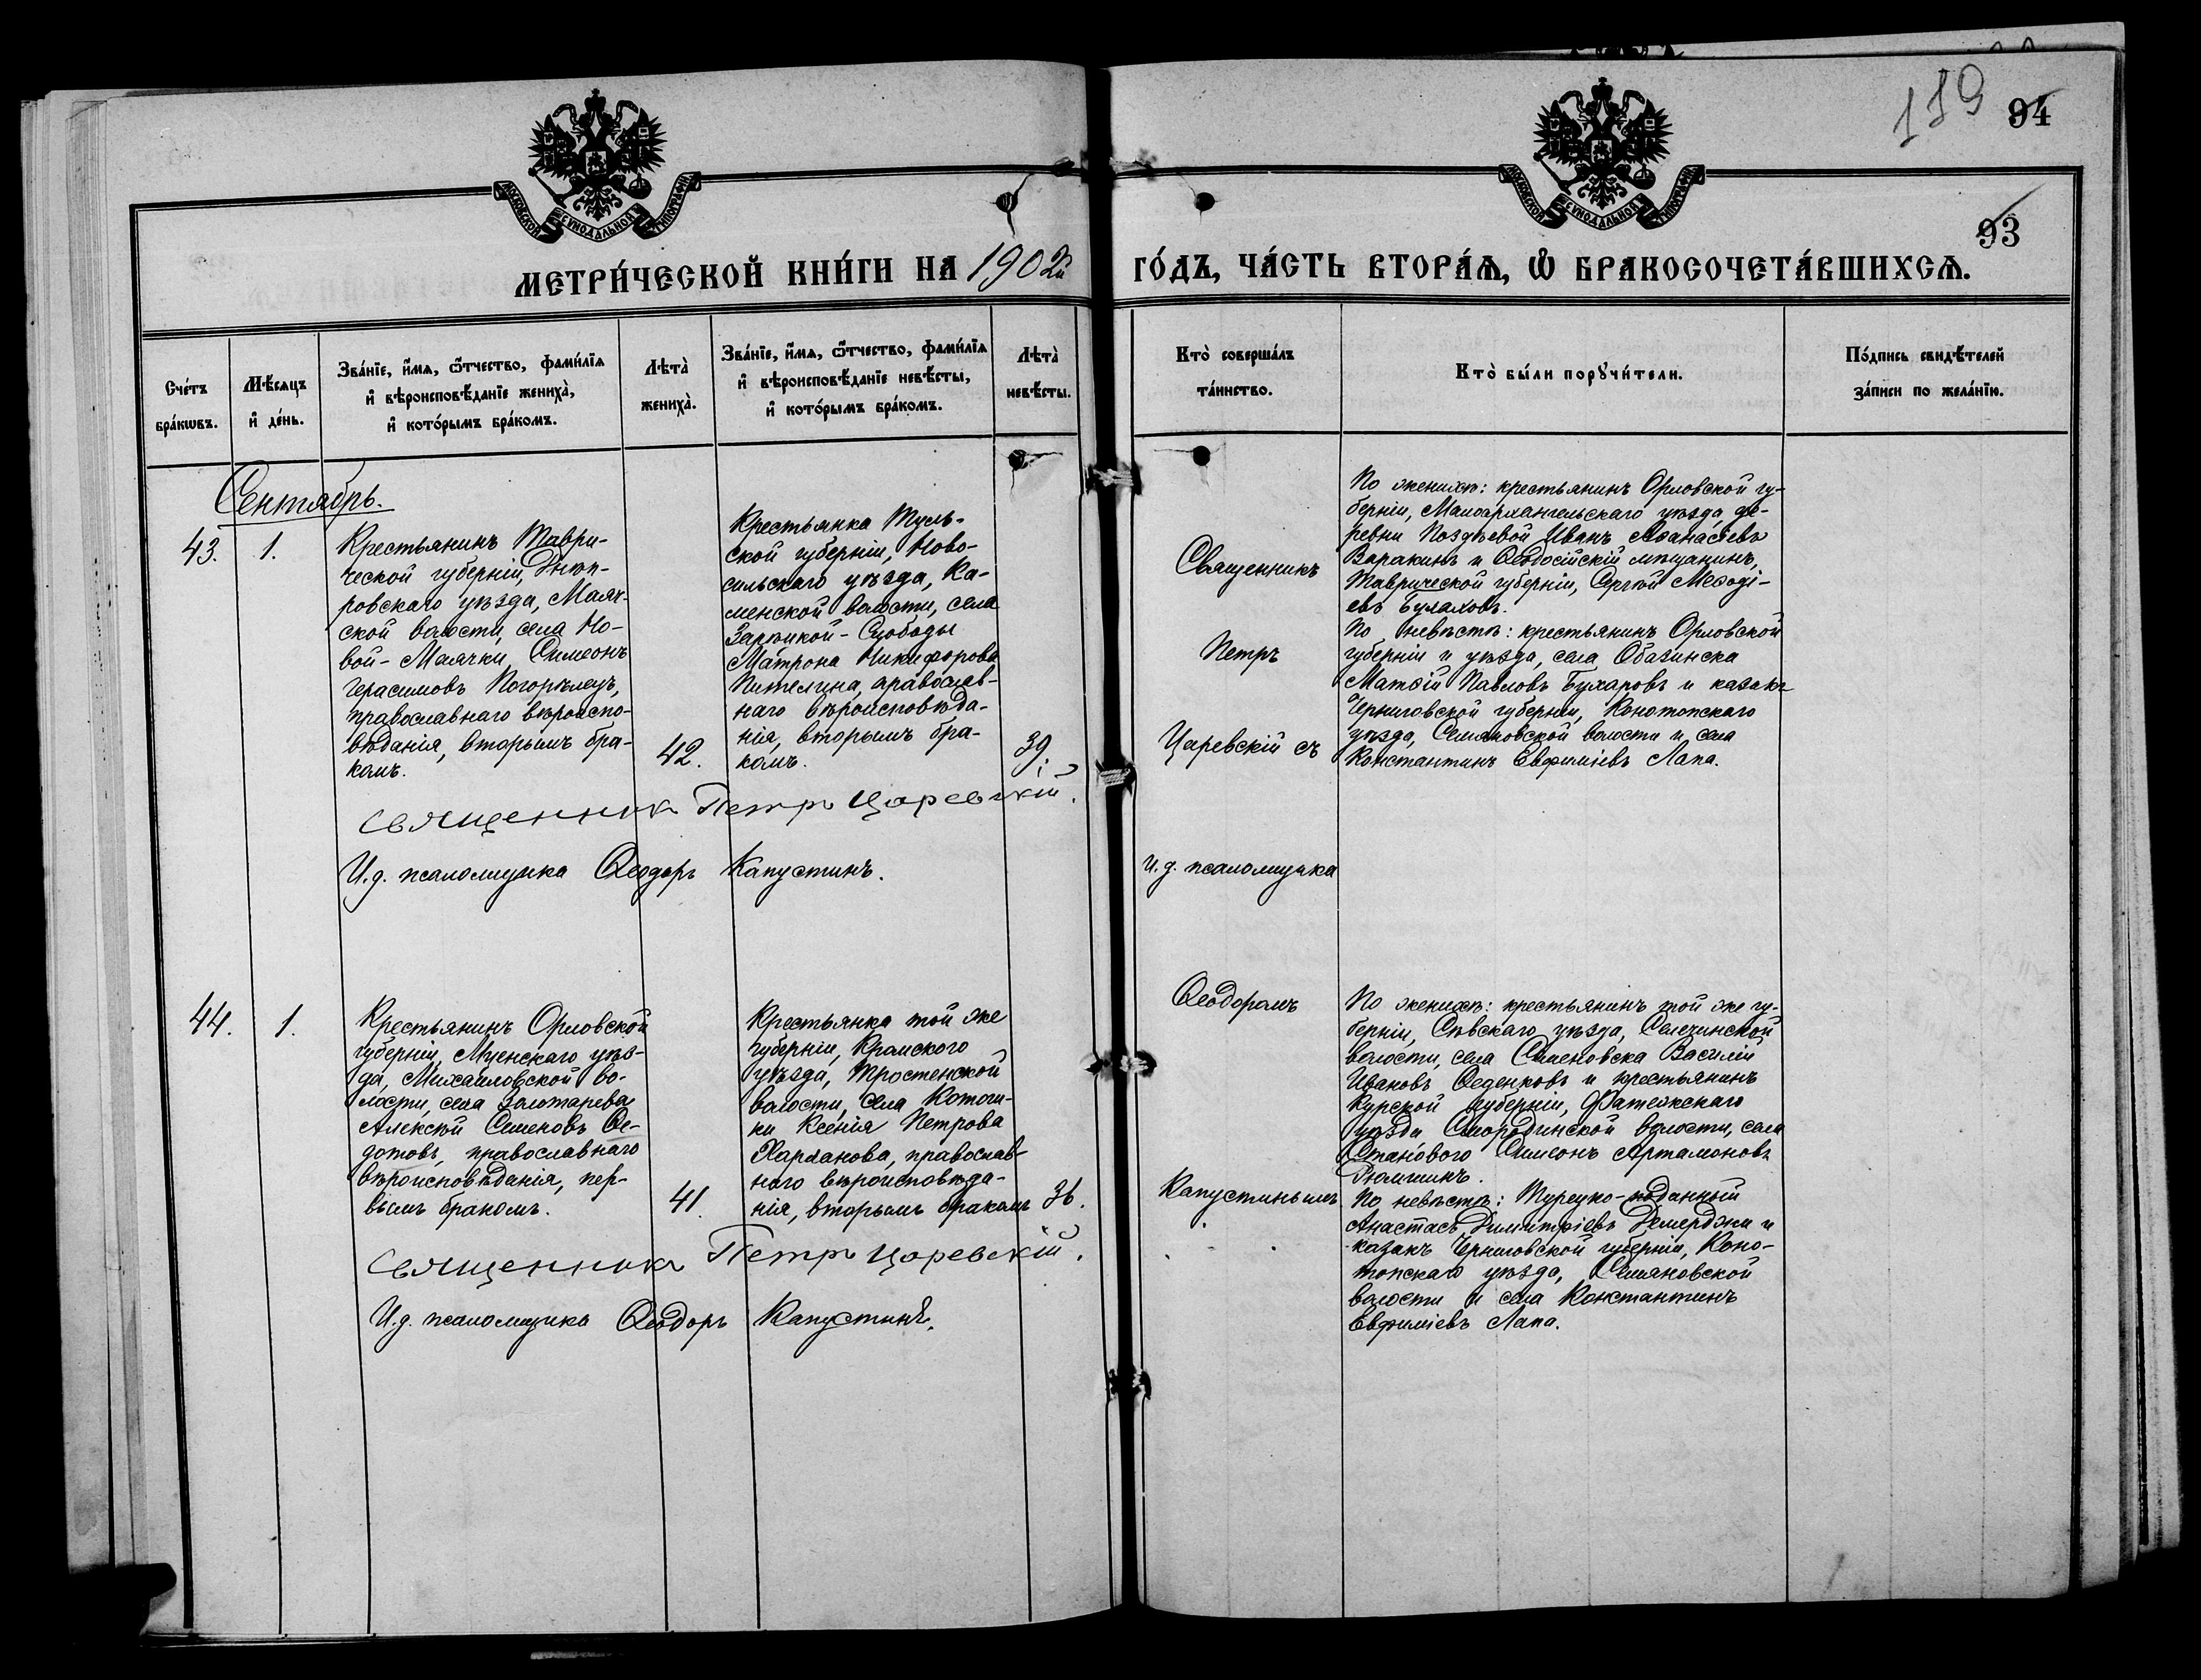 119 94
93
МОСКОВСКОЙ СѴНОДАЛЬНОЙ ТИПОГРАФІИ
МОСКОВСКОЙ СѴНОДАЛЬНОЙ ТИПОГРАФІИ
МЕТРИ́ЧЕСКОЙ КНИ́ГИ НА 1902й ГО́ДЪ, ЧА́СТЬ ВТОРА́Ѧ, Ѽ БРАКОСОЧЕТА́ВШИХСѦ.
Сче́тъ
бра́кѡвъ.
Мѣ́сѧцъ
и҆ де́нь.
Зва́нїе, и҆́мѧ, ѻ҆́тчество, фами́лїѧ
и҆ вѣроисповѣ́данїе жениха̀,
и҆ кото́рымъ бра́комъ.
Лѣта̀
жениха̀.
Зва́нїе, и҆́мѧ, ѻ҆́тчество, фами́лїѧ
и҆ вѣроисповѣ́данїе невѣ́сты,
и҆ кото́рымъ бра́комъ.
Лѣта̀
невѣ́сты.
Кто̀ соверша́лъ
та́инство.
Кто̀ бы́ли порꙋчи́тели.
По́дпись свидѣ́телей
за́писи по жела́нїю.
Сентябрь.
43.
1.
Крестьянинъ Таври-
ческой губерніи, Днѣп-
ровскаго уѣзда, Маяч-
ской волости, села Но-
вой-Маячки, Симеонъ
Герасимовъ Погорѣлецъ,
православнаго вѣроиспо-
вѣданія, вторымъ бра-
комъ.
42.
Крестьянка Туль-
ской губерніи, Ново-
сильскаго уѣзда, Ка-
менской волости, села
Зарѣцкой-Слободы
Матрона Никифорова
Пителина, православ-
наго вѣроисповѣда-
нія, вторымъ бра-
комъ.
39.
Священникъ
Петръ
Царевскій съ
По женихѣ: крестьянинъ Орловской гу-
берніи, Малоархангельскаго уѣзда, де-
ревни Поздѣевой Иванъ Аѳанасіевъ
Варакинъ и Ѳеодосійскій мѣщанинъ,
Таврической губерніи, Сергѣй Меѳоді-
евъ Булаховъ.
По невѣстѣ: крестьянинъ Орловской
губерніи и уѣзда, села Обазинска
Матѳій Павловъ Бухаровъ и казакъ
Черниговской губерніи, Конотопскаго
уѣзда, Семяновской волости и села
Константинъ Евфиміевъ Лапа.
Священникъ Петръ Царевскій.
И. д. псаломщика Ѳеодоръ Капустинъ.
и. д. псаломщика
44.
1.
Крестьянинъ Орловской
губерніи, Мценскаго уѣз-
да, Михайловской во-
лости, села Золотарева
Алексѣй Семеновъ Ѳе-
дотовъ, православнаго
вѣроисповѣданія, пер-
вымъ бракомъ.
41.
Крестьянка той же
губерніи, Кромского
уѣзда, Тростенской
волости, села
Ксенія Петрова
Харланова, православ-
наго вѣроисповѣда-
нія, вторымъ бракомъ
36.
Ѳеодоромъ
Капустинымъ
По женихѣ: крестьянинъ той же гу-
берніи, Сѣвскаго уѣзда, Селечинской
волости, села Семеновска Василій
Ивановъ Ѳеденковъ и крестьянинъ
Курской губерніи, Фатежскаго
уѣзда Смородинской волости, села
Становаго Симеонъ Артамоновъ
Рюмшинъ.
По невѣстѣ: Турецко-подданный
Анастасъ Димитріевъ Демерджи и
казакъ Черниговской губерніи, Коно-
топскаго уѣзда, Семяновской
волости и села Константинъ
Евфиміевъ Лапа.
Священникъ Петръ Царевскій.
И. д. псаломщика Ѳеодоръ Капустинъ.